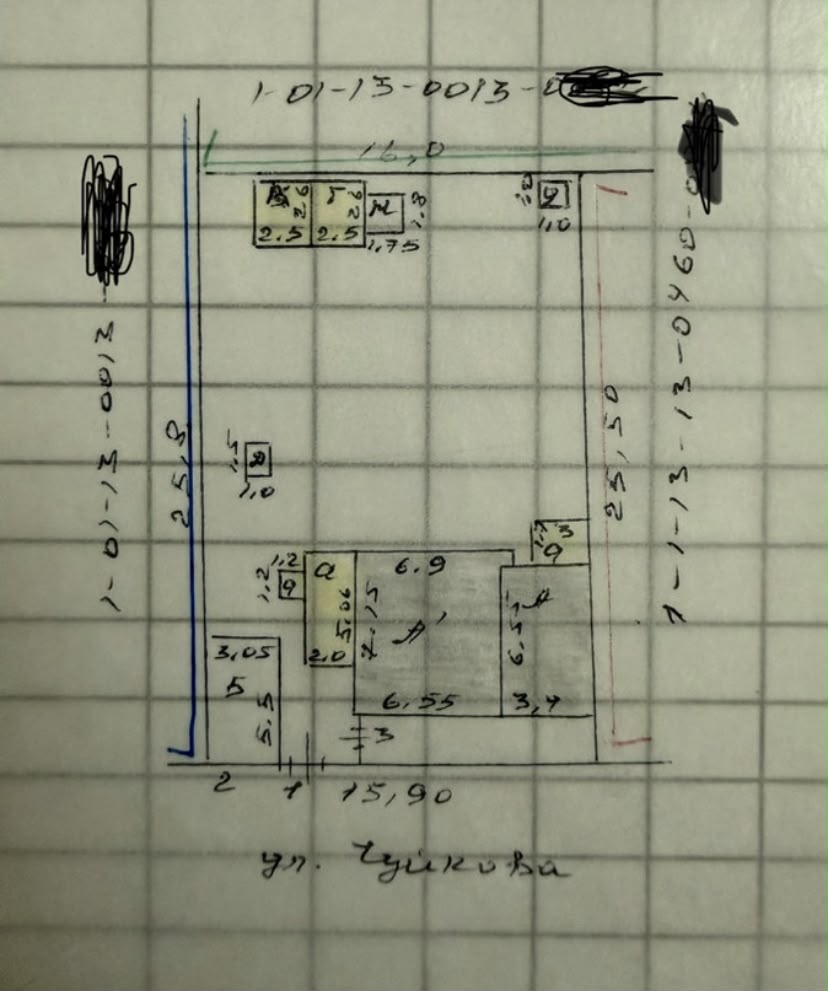 1-01-13-0013-0
16,0
2.6
2.6
1.8
2.5
2.5
1,75
1.0
2
1,0
1-01-13-0013
25,8
1-1-13-13-0460-0
25,50
1.5
1,0
1,2
1.2
a
5.06
2.0
6.9
7.15
A'
6.55
6.5
A
3,4
a
3,05
5
5.5
3
2
1
15,90
ул. Чуйкова